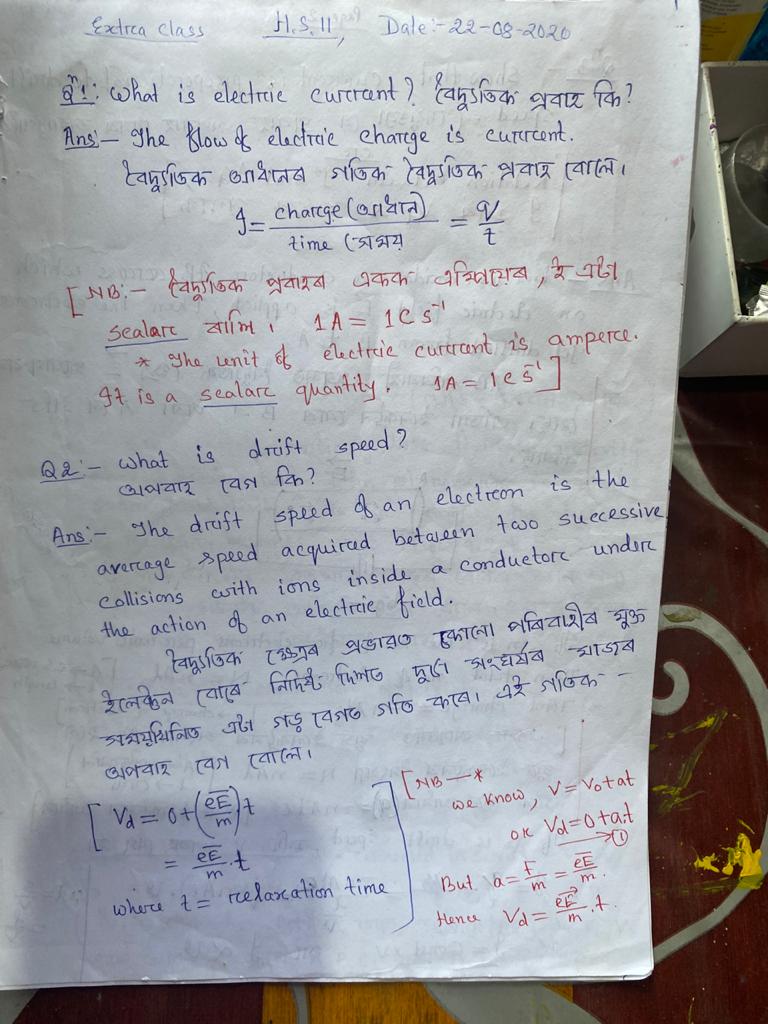 Extrca class H.S. 11, Date:- 22-08-2020
Qⁿ1: What is electrric currrcent? বৈদ্যুতিক প্ৰবাহ কি?
Ans:- The flow of electrric charcge is currrcent.
বৈদ্যুতিক আধানৰ গতিক বৈদ্যুতিক প্ৰবাহ বোলে।
I = charcge (আধান) / time (সময় = q / t
[NB:- বৈদ্যুতিক প্ৰবাহৰ একক এম্পিয়েৰ, ই এটা
scalarc ৰাশি। 1A = 1C s⁻¹
* The unit of electrric currrcent is amperce.
It is a scalarc quantity. 1A = 1C s⁻¹]
Q2:- What is drrift speed?
অপবাহ বেগ কি?
Ans:- The drrift speed of an electrron is the
avercage speed acquirced between two successive
collisions with ions inside a conductorc underc
the action of an electrric field.
বৈদ্যুতিক ক্ষেত্ৰৰ প্ৰভাৱত কোনো পৰিবাহীৰ মুক্ত
ইলেক্ট্ৰন বোৰে নিৰ্দিষ্ট দিশত দুটা সংঘৰ্ষৰ মাজৰ
সময়খিনিত এটা গড় বেগত গতি কৰে। এই গতিক -
অপবাহ বেগ বোলে।
[ Vd = 0 + (eE̅ / m) t
= eE̅ / m . t
where t = rcelaxation time ]
[NB—*
we know, V = V₀ + at
orc Vd = 0 + a.t → ①
But a = F / m = eE̅ / m.
Hence Vd = eE⃗ / m . t.